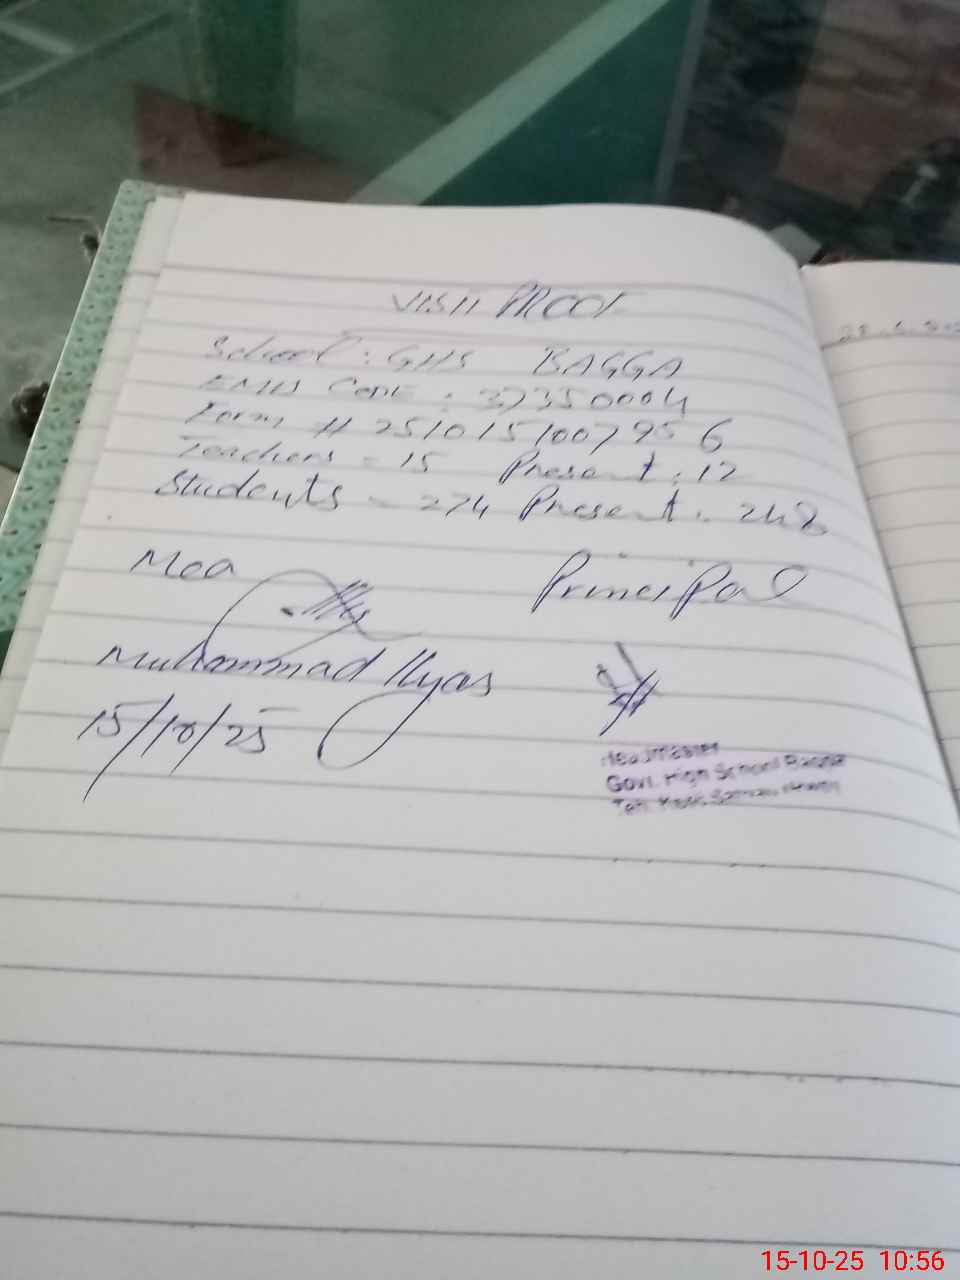 VISIT PROOF
School: GHS BAGGA
EMIS Code: 37350004
Form # 251015100795 6
Teachers = 15 Present: 12
Students = 274 Present: 248
Mea Principal
Muhammad Ilyas
15/10/25
Headmaster
Govt. High School Bagga
Teh.
15-10-25 10:56